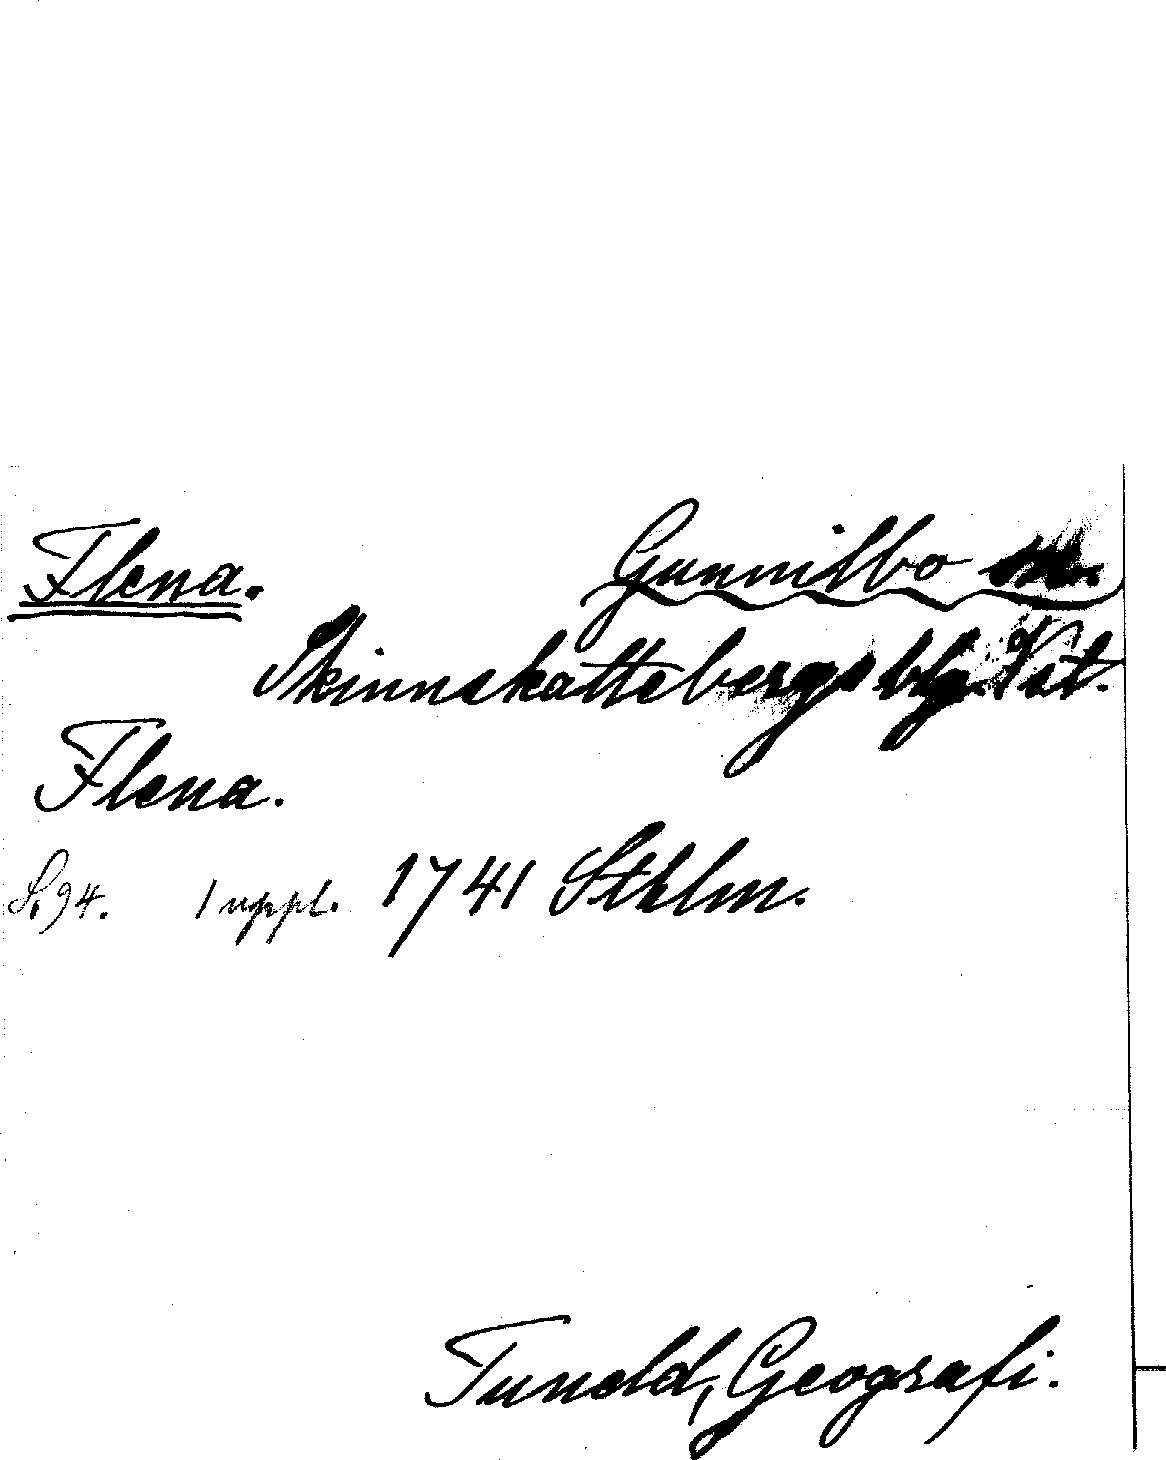 Flena. Gunnilbo sn.
Skinnskattebergs blg. Vst.
Flena.
S. 94. 1 uppl. 1741 Sthlm.
Tuneld, Geografi.